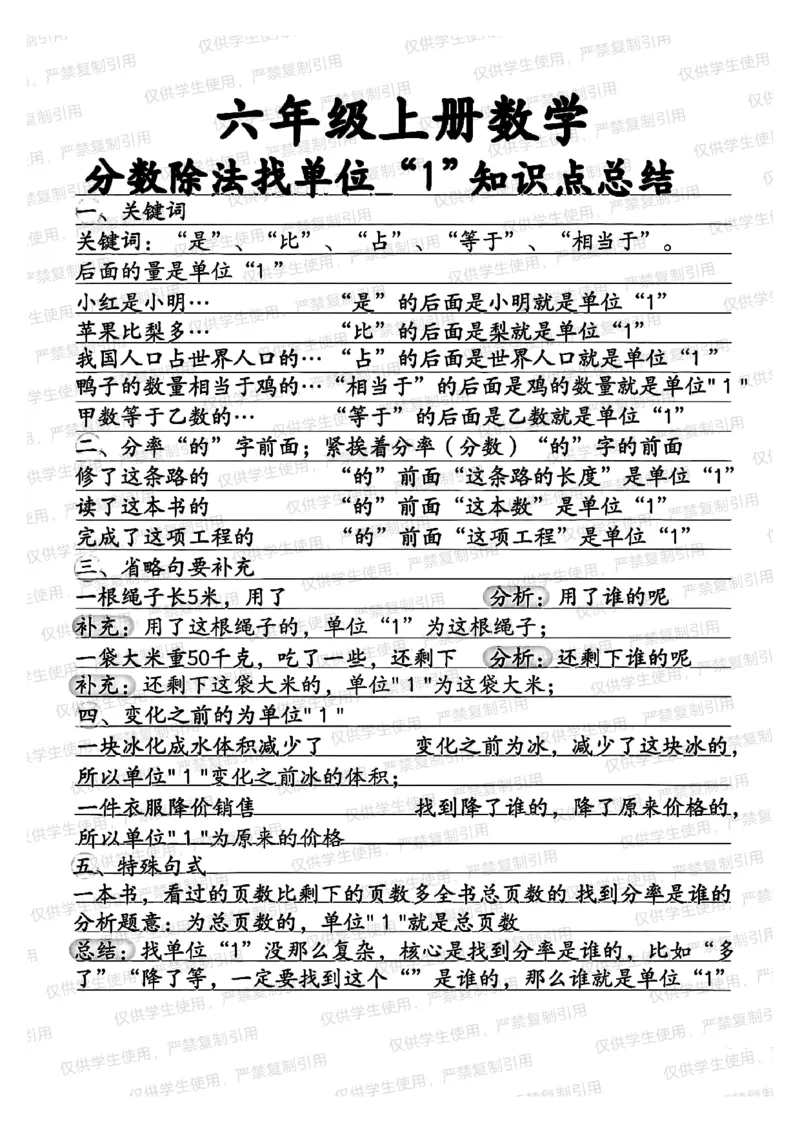 六年级上册数学
分数除法找单位“1”知识点总结
一、关键词
关键词：“是”、“比”、“占”、“等于”、“相当于”。
后面的量是单位“1”
小红是小明… “是”的后面是小明就是单位“1”
苹果比梨多… “比”的后面是梨就是单位“1”
我国人口占世界人口的… “占”的后面是世界人口就是单位“1”
鸭子的数量相当于鸡的…“相当于”的后面是鸡的数量就是单位"1"
甲数等于乙数的… “等于”的后面是乙数就是单位“1”
二、分率“的”字前面；紧挨着分率（分数）“的”字的前面
修了这条路的 “的”前面“这条路的长度”是单位“1”
读了这本书的 “的”前面“这本数”是单位“1”
完成了这项工程的 “的”前面“这项工程”是单位“1”
三、省略句要补充
一根绳子长5米，用了 分析：用了谁的呢
补充：用了这根绳子的，单位“1”为这根绳子；
一袋大米重50千克，吃了一些，还剩下 分析：还剩下谁的呢
补充：还剩下这袋大米的，单位"1"为这袋大米；
四、变化之前的为单位"1"
一块冰化成水体积减少了 变化之前为冰，减少了这块冰的，
所以单位"1"变化之前冰的体积；
一件衣服降价销售 找到降了谁的，降了原来价格的，
所以单位"1"为原来的价格
五、特殊句式
一本书，看过的页数比剩下的页数多全书总页数的 找到分率是谁的
分析题意：为总页数的，单位"1"就是总页数
总结：找单位“1”没那么复杂，核心是找到分率是谁的，比如“多
了”“降了等，一定要找到这个“”是谁的，那么谁就是单位“1”
仅供学生使用，严禁复制引用